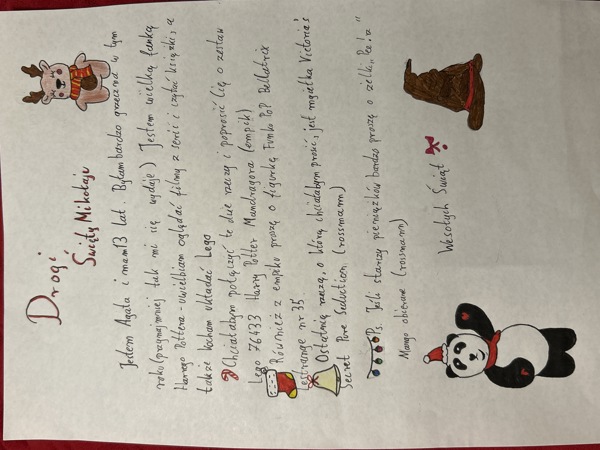 Drogi
Święty Mikołaju
Jestem Agata i mam 13 lat. Byłam bardzo grzeczna w tym
roku (przynajmniej tak mi się wydaje) Jestem wielką fanką
Harrego Pottera - uwielbiam oglądać filmy z serii i czytać książki, a
także kocham układać Lego
Chciałabym połączyć te dwie rzeczy i poprosić Cię o zestaw
Lego 76433 Harry Potter Mandragora (empik)
Również z empiku proszę o figurkę Funko PoP Bellatrix
Lestrange nr 35
Ostatnią rzeczą, o którą chciałabym prosić, jest mgiełka Victoria's
Secret Pure Seduction (rossmann)
Ps. Jeśli starczy pieniążków bardzo proszę o żelki
Mango obierane (rossmann)
Wesołych Świąt